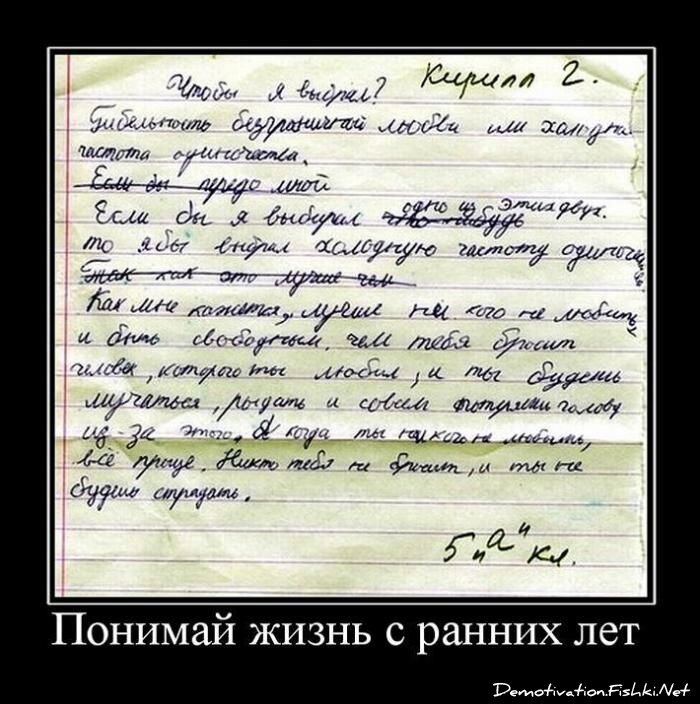 Чтобы я выбрал? Кирилл Г.
Гибельность безграничной любви или холодная
частота одиночества.
Если бы передо мной
Если бы я выбирал что-нибудь одно из этих двух.
то я бы выбрал холодную частоту одиночества
Так как это лучше чем
Как мне кажется, лучше ни кого не любить,
и быть свободным, чем тебя бросит
человек, которого ты любил, и ты будешь
мучаться, рыдать и совсем потеряеш голову
из-за этого. А когда ты ни кого не любишь,
всё проще. Никто тебя не бросит, и ты не
будешь страдать.
5 "а" кл.
Понимай жизнь с ранних лет
Demotivation.Fishki.Net